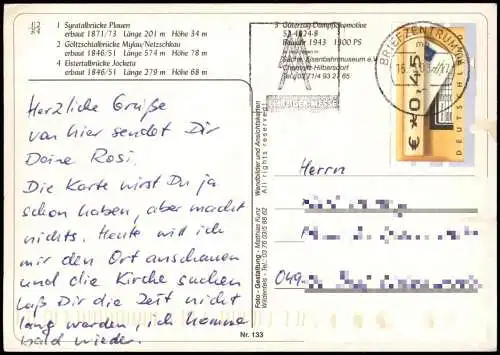 1 Syratalbrücke Plauen
erbaut 1871/73 Länge 201 m Höhe 34 m
2 Göltzschtalbrücke Mylau/Netzschkau
erbaut 1846/51 Länge 574 m Höhe 78 m
4 Elstertalbrücke Jocketa
erbaut 1846/51 Länge 279 m Höhe 68 m
3 Güterzug-Dampflokomotive
Baujahr 1943 1900 PS
Sächs. Eisenbahnmuseum e.V.
Chemnitz-Hilbersdorf
BRIEFZENTRUM
€ *0,45
DEUTSCHLAND
MESSE
Herzliche Grüße
von hier sendet Dir
Deine Rosi.
Die Karte wirst Du ja
schon haben, aber macht
nichts. Heute will ich
mir den Ort anschauen
und die Kirche suchen
Laß Dir die Zeit nicht
lang werden, ich komme
bald wieder.
Wandbilder und Ansichtskarten
All rights reserved!
Foto - Gestaltung - Matthias Kunz
Herrn
049
Nr. 133